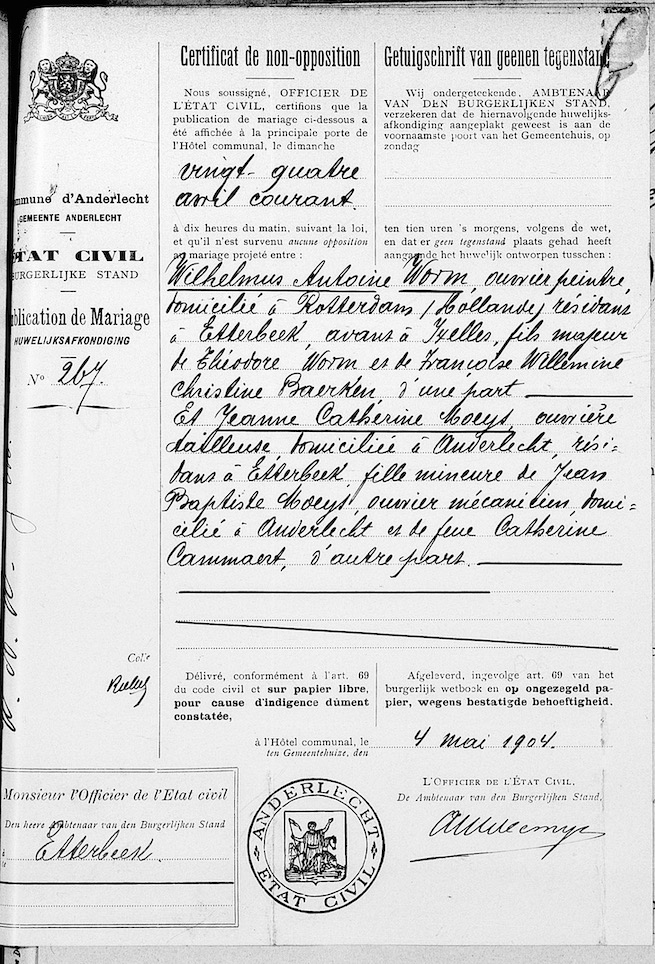 Certificat de non-opposition
Nous soussigné, OFFICIER DE
L'ÉTAT CIVIL, certifions que la
publication de mariage ci-dessous a
été affichée à la principale porte de
l'Hôtel communal, le dimanche
vingt-quatre
avril courant.
à dix heures du matin, suivant la loi,
et qu'il n'est survenu aucune opposition
au mariage projeté entre :
Getuigschrift van geenen tegenstand
Wij ondergeteekende, AMBTENAAR
VAN DEN BURGERLIJKEN STAND,
verzekeren dat de hiernavolgende huwelijks-
afkondiging aangeplakt geweest is aan de
voornaamste poort van het Gemeentehuis, op
zondag
ten tien uren 's morgens, volgens de wet,
en dat er geen tegenstand plaats gehad heeft
aangaande het huwelijk ontworpen tusschen :
mmune d'Anderlecht
GEMEENTE ANDERLECHT
TAT CIVIL
BURGERLIJKE STAND
blication de Mariage
HUWELIJKSAFKONDIGING
N° 267.
Wilhelmus Antoine Worm, ouvrier peintre,
domicilié à Rotterdam (Hollande) résidant
à Etterbeek, avant à Ixelles, fils majeur
de Théodore Worm et de Françoise Willemine
Christine Baerken, d'une part
Et Jeanne Catherine Moeyt, ouvrière
tailleuse, domiciliée à Anderlecht, rési-
dant à Etterbeek, fille mineure de Jean
Baptiste Moeyt, ouvrier mécanicien, domi=
cilié à Anderlecht et de feue Catherine
Cammaert, d'autre part.
Délivré, conformément à l'art. 69
du code civil et sur papier libre,
pour cause d'indigence dûment
constatée,
Afgeleverd, ingevolge art. 69 van het
burgerlijk wetboek en op ongezegeld pa-
pier, wegens bestatigde behoeftigheid.
à l'Hôtel communal, le
ten Gemeentehuize, den
4 mai 1904.
L'OFFICIER DE L'ÉTAT CIVIL.
De Ambtenaar van den Burgerlijken Stand,
Monsieur l'Officier de l'Etat civil
Den heere Ambtenaar van den Burgerlijken Stand
à
te
Etterbeek.
ANDERLECHT
ETAT CIVIL